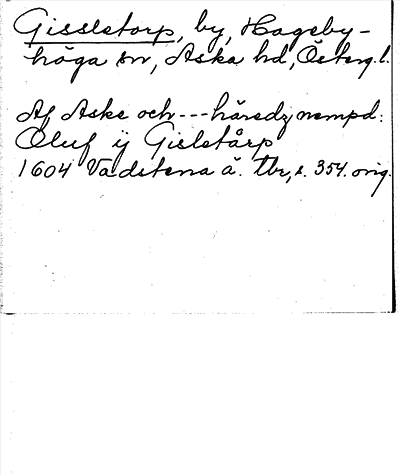 Gissletorp, by, Hageby-
höga sn, Aska hd, Österg. l.
Af Aske och --- häredz nempd:
Oluf ij Gisletårp
1604 Vadstena ä. tbr, s. 354. orig.